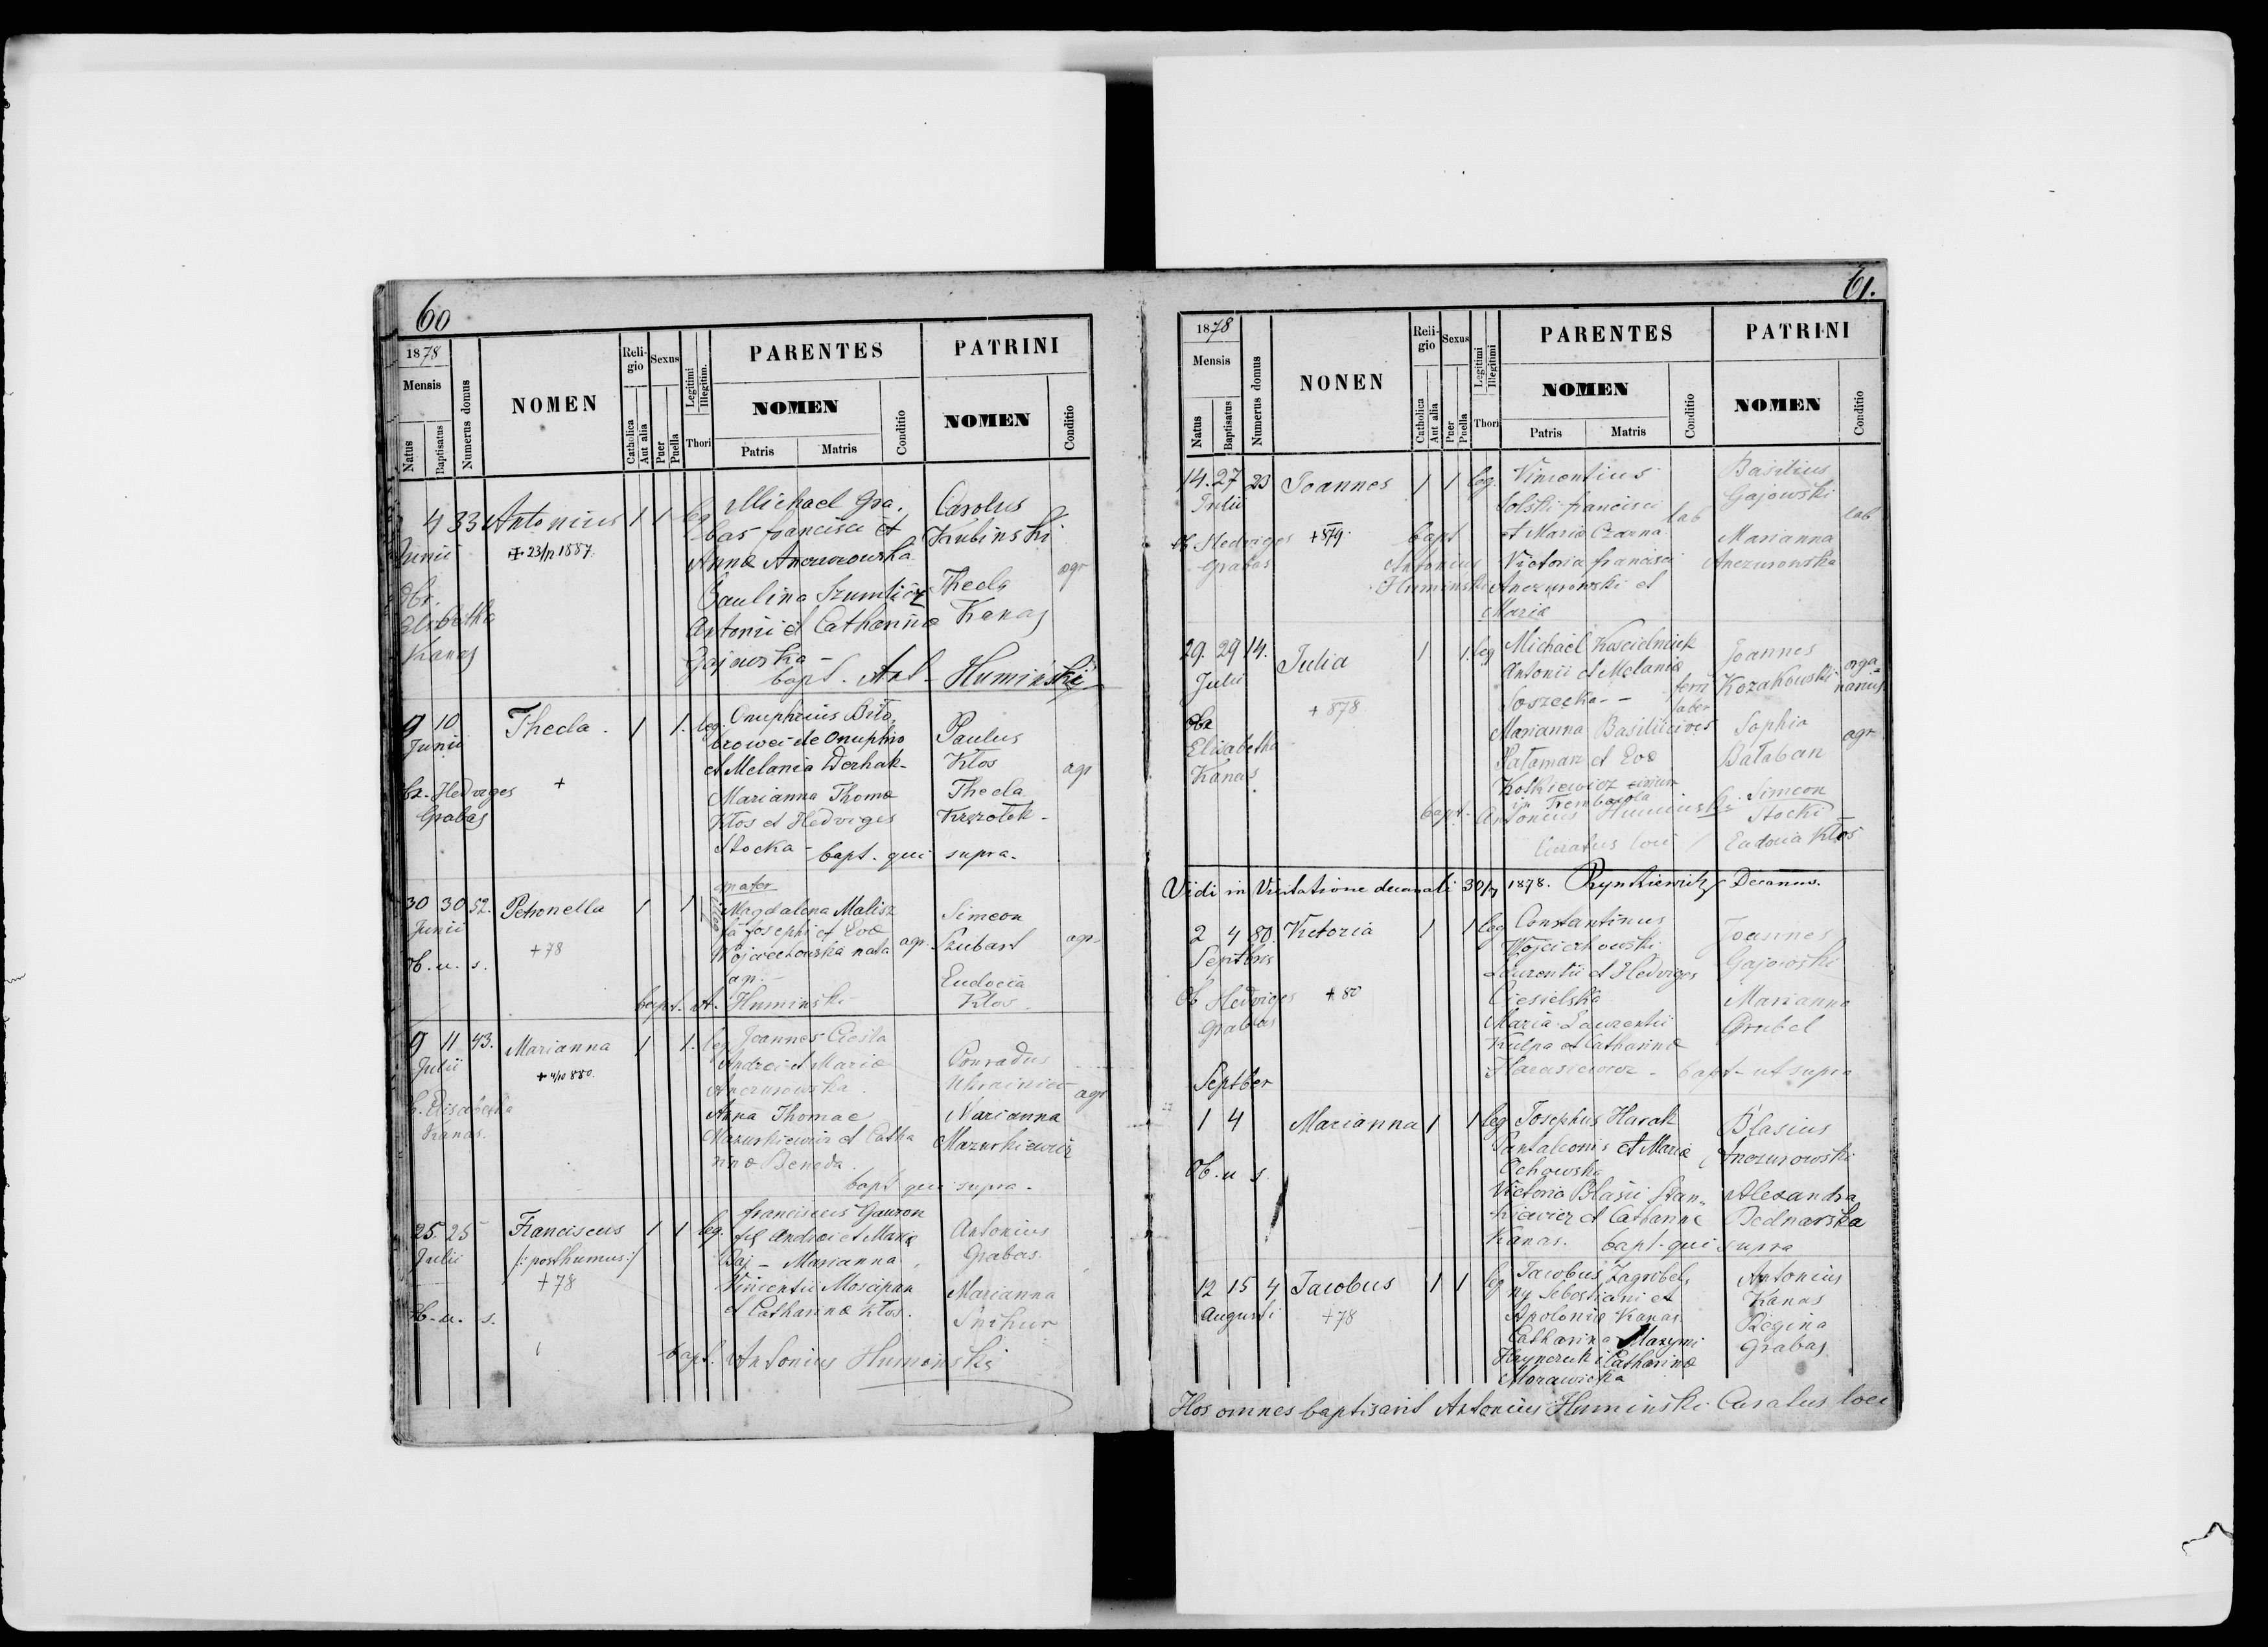 60
1878
Mensis
Natus
Baptisatus
Numerus domus
NOMEN
Religio
Catholica
Aut alia
Sexus
Puer
Puella
Legitimi
Illegitim.
Thori
PARENTES
NOMEN
Patris
Matris
Conditio
PATRINI
NOMEN
Conditio
4 33 Antonius 1 1 leg Michael Gra,
Junii
23/11 1887.
bas francisci et
Anna Anczurowska
Paulina Szumlicz
Antonii et Catharina
Gajowska -
Obs.
Elisbetha
Kanas
Carolus
Kubinski
Thecla
Kanas
agr
bapt. Ant. Huminski
9 10 Thecla. 1 1. leg. Onuphrius Bito,
Junii
+
browei de Onuphrio
et Melania Derhak -
Marianna Thoma
Klos et Hedviges
Stocka -
Hedviges
Grabas
Paulus
Klos
Thecla
Krzrotek -
agr
bapt. qui supra.
mater
30 30 52. Petronella 1 1 Magdalena Malisz
Junii
+78
fa Josephi et Eva
Wojciechowska nata
agr.
Ob. u. s.
Simeon
Szubart
Eudocia
Klos
agr.
bapt. A. Huminski
9 11 43. Marianna 1 1. leg Joannes Ciesla
Julii
+ 4/10 880.
Andrei et Maria
Anczurowska
Anna Thomae
Mazurkiewicz et Catha
rina Beneda
Elisabetha
Kanas.
Conradus
Ukrainiec
Marianna
Mazurkiewicz
agr
bapt qui supra.
25. 25 Franciscus 1 1 leg. franciscus Gawron
Julii
/: posthumus :/
+78
fil Andrei et Maria
Baj - Marianna
Vincentii Moscipan
et Catharina Klos.
Ob. u. s.
Antonius
Grabas.
Marianna
Snihur
bapt. Antonius Huminski
61.
1878
Mensis
Natus
Baptisatus
Numerus domus
NONEN
Religio
Catholica
Aut alia
Sexus
Puer
Puella
Legitimi
Illegitimi
Thori
PARENTES
NOMEN
Patris
Matris
Conditio
PATRINI
NOMEN
Conditio
14. 27 23 Joannes 1 1 leg. Vincentius
Julii
+879.
Solski francisci
et Maria Czarna
Victoria francisci
Anczurowski et
Maria
lab
Ob Hedviges
Grabas
bapt
Antonius
Huminski
Basilius
Gajowski
Marianna
Anczurowska
lab
29. 29 14. Julia 1. 1. leg Michael Koscielniuk
Julii
+878
Antonii et Melania
Soszecka -
ferri
faber
Marianna Basilii
Pataman et Eva
Kotkiewicz
in Trembowla
Elisabetha
Kanas
Joannes
Kozakowski
organarius
Sophia
Bataban
agr
Simeon
Stocki
Eudocia Klos
bapt. Antonius Huminski
Curatus loci
Vidi in Visitatione decanali 30/7 1878. Rynkiewicz Decanus.
2 4 80. Victoria 1 1 leg Constantinus
Septbris
Wojciechowski
Laurentii et Hedviges
Ciesielska
Maria Laurentii
Kulpa et Catharina
Harasiewicz -
Ob Hedviges + 80
Grabas
Joannes
Gajowski
Marianna
Grubel
bapt - ut supra
Septber
1 4 Marianna 1 1 leg Josephus Hurak
Pantaleonis et Maria
Ochowska
Victoria Blasii Stan,,
kiewicz et Catharina
Kanas.
Ob. u s
Blasius
Anczurowski
Alexandra
Bednarska
bapt. qui supra
12 15 4 Jacobus 1 1 leg Jacobus Zagrobel,
Augusti
+78
ny Sebastiani et
Apolonia Kanas
Catharina Maxymi
Hrynczuk i Catharina
Morawicka
Antonius
Kanas
Regina
Grabas
Hos omnes baptisavit Antonius Huminski Curatus loci